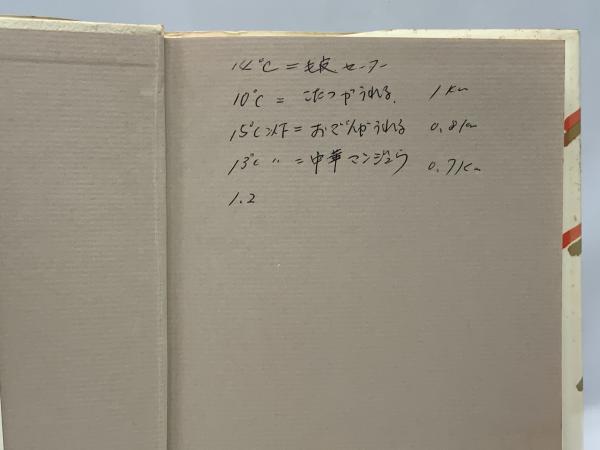 14℃ = 毛皮 セーター
10℃ = こたつがうれる. 1 Km
15℃以下 = おでんがうれる 0.8 Km
13℃ 〃 = 中華マンジュウ 0.7 Km
1.2